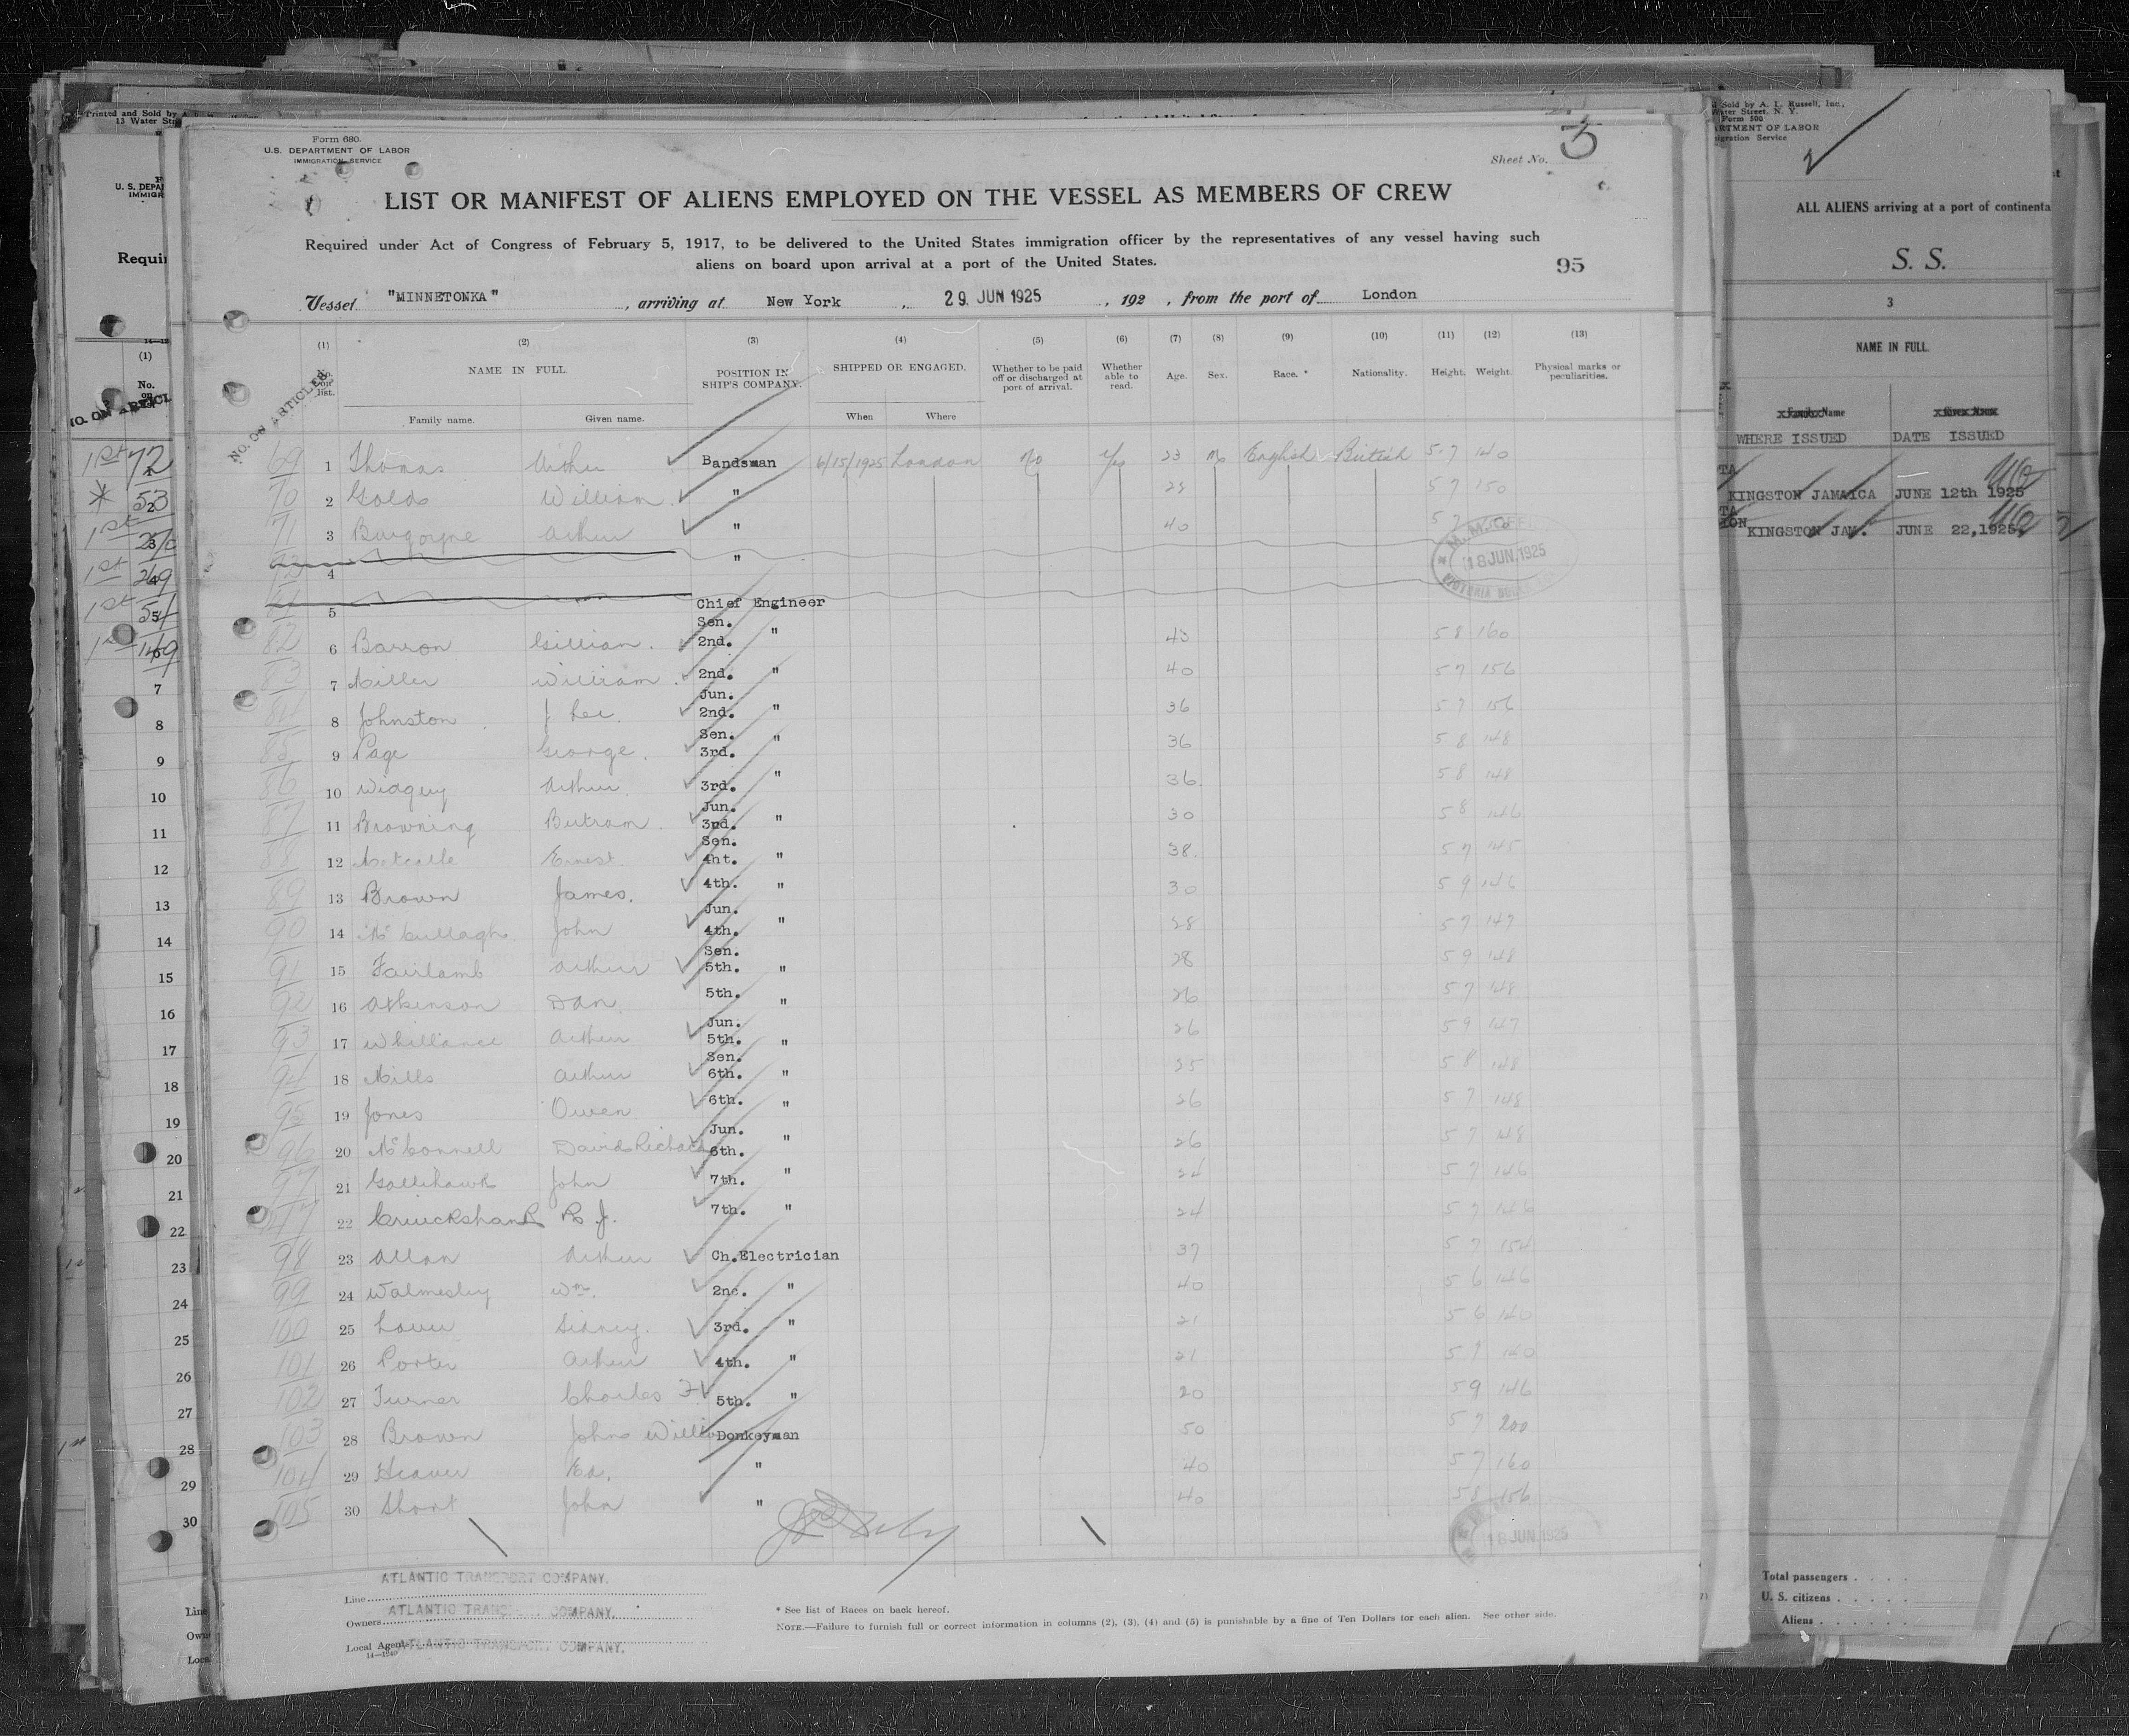 Form 680.
U.S. DEPARTMENT OF LABOR
IMMIGRATION SERVICE
Sheet No. 3
LIST OR MANIFEST OF ALIENS EMPLOYED ON THE VESSEL AS MEMBERS OF CREW
Required under Act of Congress of February 5, 1917, to be delivered to the United States immigration officer by the representatives of any vessel having such
aliens on board upon arrival at a port of the United States.
95
Vessel "MINNETONKA", arriving at New York, 29 JUN 1925, 192 , from the port of London
(1) (2) (3) (4) (5) (6) (7) (8) (9) (10) (11) (12) (13)
NO. ON ARTICLES
No. on list.
NAME IN FULL
Family name. Given name.
POSITION IN SHIP'S COMPANY.
SHIPPED OR ENGAGED.
When Where
Whether to be paid off or discharged at port of arrival.
Whether able to read.
Age. Sex. Race. * Nationality. Height. Weight. Physical marks or peculiarities.
69 1 Thomas Arthur Bandsman 6/15/1925 London No Yes 23 M English British 5.7 140
70 2 William " 5 7 150
71 3 Burgoyne Arthur " 40
4 "
5 Chief Engineer
82 6 Barron Gillian. Sen. 2nd. " 43 5 8 160
83 7 Miller William. 2nd. " 40 5 7 156
84 8 Johnston J. Lee. Jun. 2nd. " 36 5 7 156
85 9 Page George. Sen. 3rd. " 36 5 8 148
86 10 Widguy Arthur 3rd. " 36. 5 8 148
87 11 Browning Bertram. Jun. 3rd. " 30 5 8 146
88 12 Metcalfe Ernest Sen. 4ht. " 38. 5 7 145
89 13 Brown James. 4th. " 30 5 9 146
90 14 McCullagh John Jun. 4th. " 28 5 7 147
91 15 Fairlamb Arthur Sen. 5th. " 28 5 9 148
92 16 Atkinson Dan. 5th. " 26 5 7 148
93 17 Whillance Arthur Jun. 5th. " 26 5 9 147
94 18 Mills Arthur Sen. 6th. " 25 5 8 148
95 19 Jones Owen 6th. " 26 5 7 148
96 20 McConnell David Richard Jun. 6th. " 26 5 7 148
97 21 Gallihawk John 7th. " 24 5 7 146
22 Cruickshank R J. 7th. " 24 5 7 146
98 23 Allan Arthur Ch.Electrician 37 5 7 154
99 24 Walmesley Wm. 2nd. " 40 5 6 146
100 25 Sidney. 3rd. " 21 5 6 140
101 26 Porter Arthur 4th. " 21 5 7 140
102 27 Turner Charles 5th. " 20 5 9 146
103 28 Brown John Donkeyman 50 5 7 200
104 29 Heaver Ed. " 40 5 7 160
105 30 Short John " 40 5 8 156
18 JUN 1925
18 JUN 1925
Line ATLANTIC TRANSPORT COMPANY.
Owners ATLANTIC TRANSPORT COMPANY.
Local Agents ATLANTIC TRANSPORT COMPANY.
14—1240
* See list of Races on back hereof.
NOTE.—Failure to furnish full or correct information in columns (2), (3), (4) and (5) is punishable by a fine of Ten Dollars for each alien. See other side.
Printed and Sold by
13 Water
(1)
No. on
1st 72
53
1st
1st 269
1st 54
1st 149
7
8
9
10
11
12
13
14
15
16
17
18
19
20
21
22
23
24
25
26
27
28
29
30
Sold by A. L. Russell, Inc.,
Water Street, N. Y.
Form 500
ARTMENT OF LABOR
migration Service
ALL ALIENS arriving at a port of continenta
S. S.
3
NAME IN FULL
Family Name
WHERE ISSUED DATE ISSUED
KINGSTON JAMAICA JUNE 12th 1925
KINGSTON JAM. JUNE 22,1925.
Total passengers
U. S. citizens
Aliens